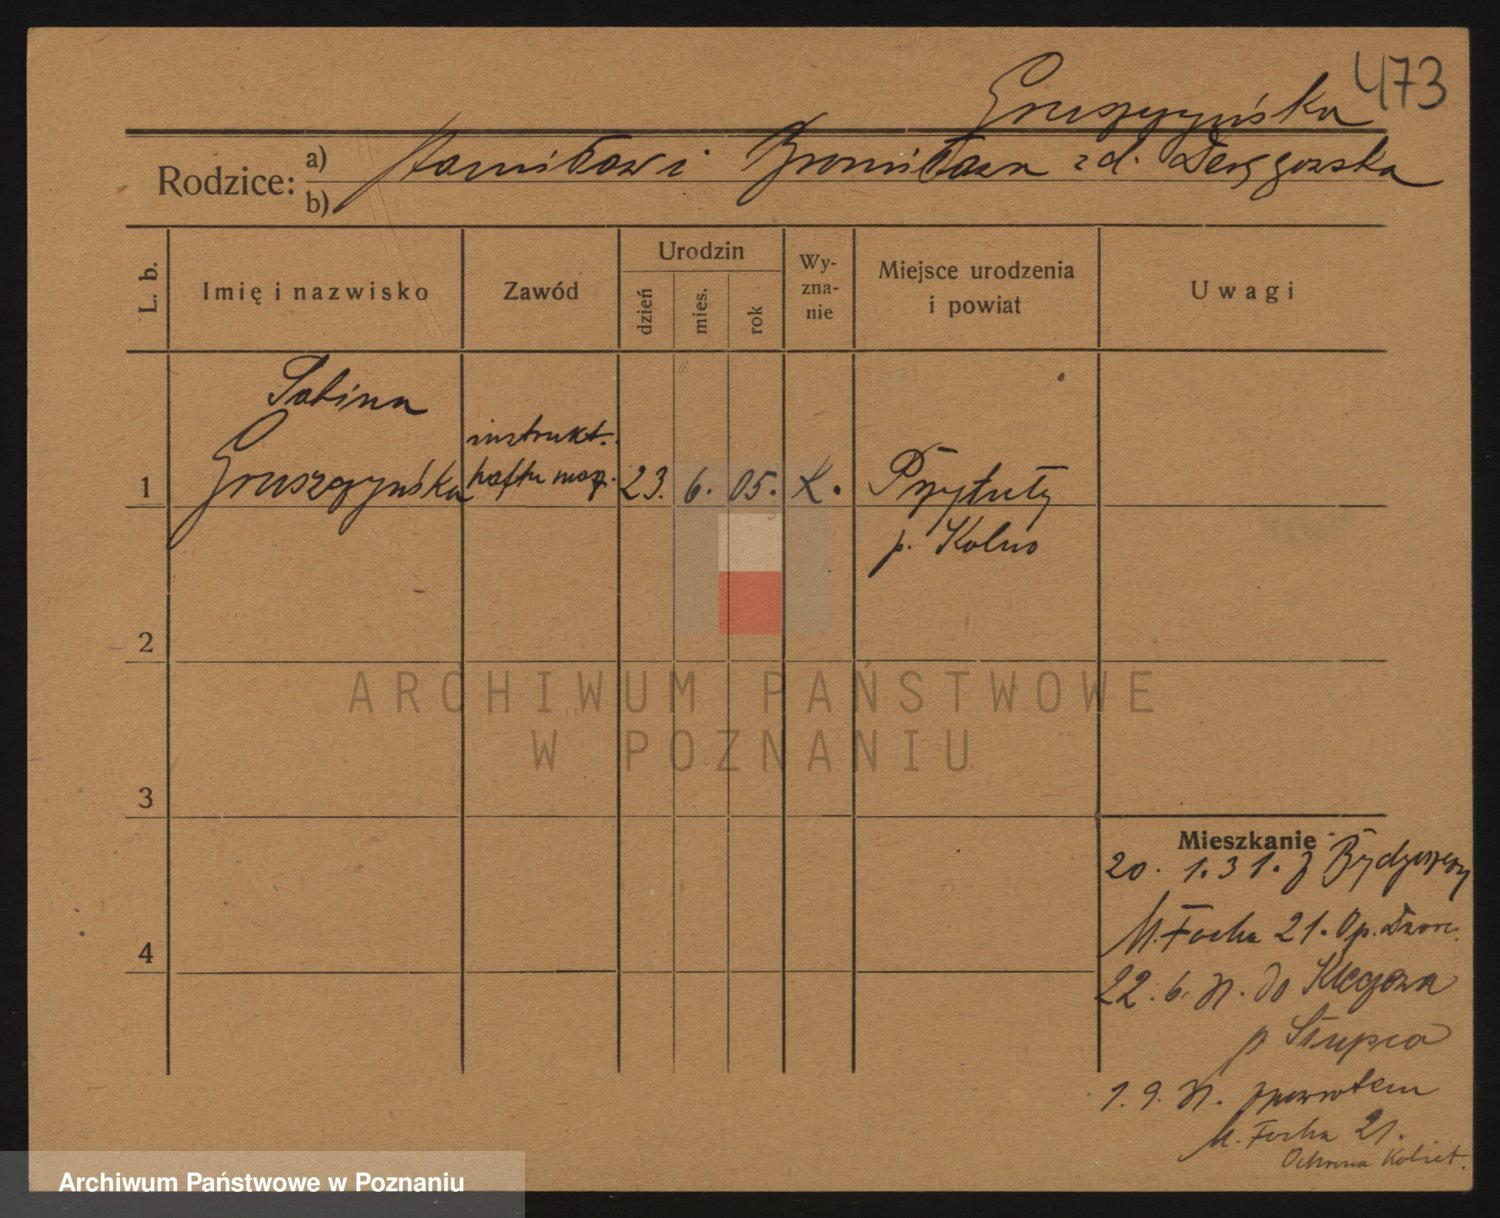 473
Gruszczyńska
Rodzice: a) Stanisław i Bronisława z d.
b)
L. b.
Imię i nazwisko
Zawód
Urodzin
dzień
mies.
rok
Wy-
zna-
nie
Miejsce urodzenia
i powiat
Uwagi
Sabina
Gruszczyńska
instrukt.
haftu masz.
1
23. 6. 05. K.
Przytuły
p. Kolno
2
3
4
ARCHIWUM PAŃSTWOWE
W POZNANIU
Mieszkanie
20. 1. 31. z Bydgoszczy
M. Focha 21. Op. Dworc.
22. 6. 31. do
p Słupca
1. 9. 31. zpowrotem
M. Focha 21.
Ochrona Kobiet.
Archiwum Państwowe w Poznaniu